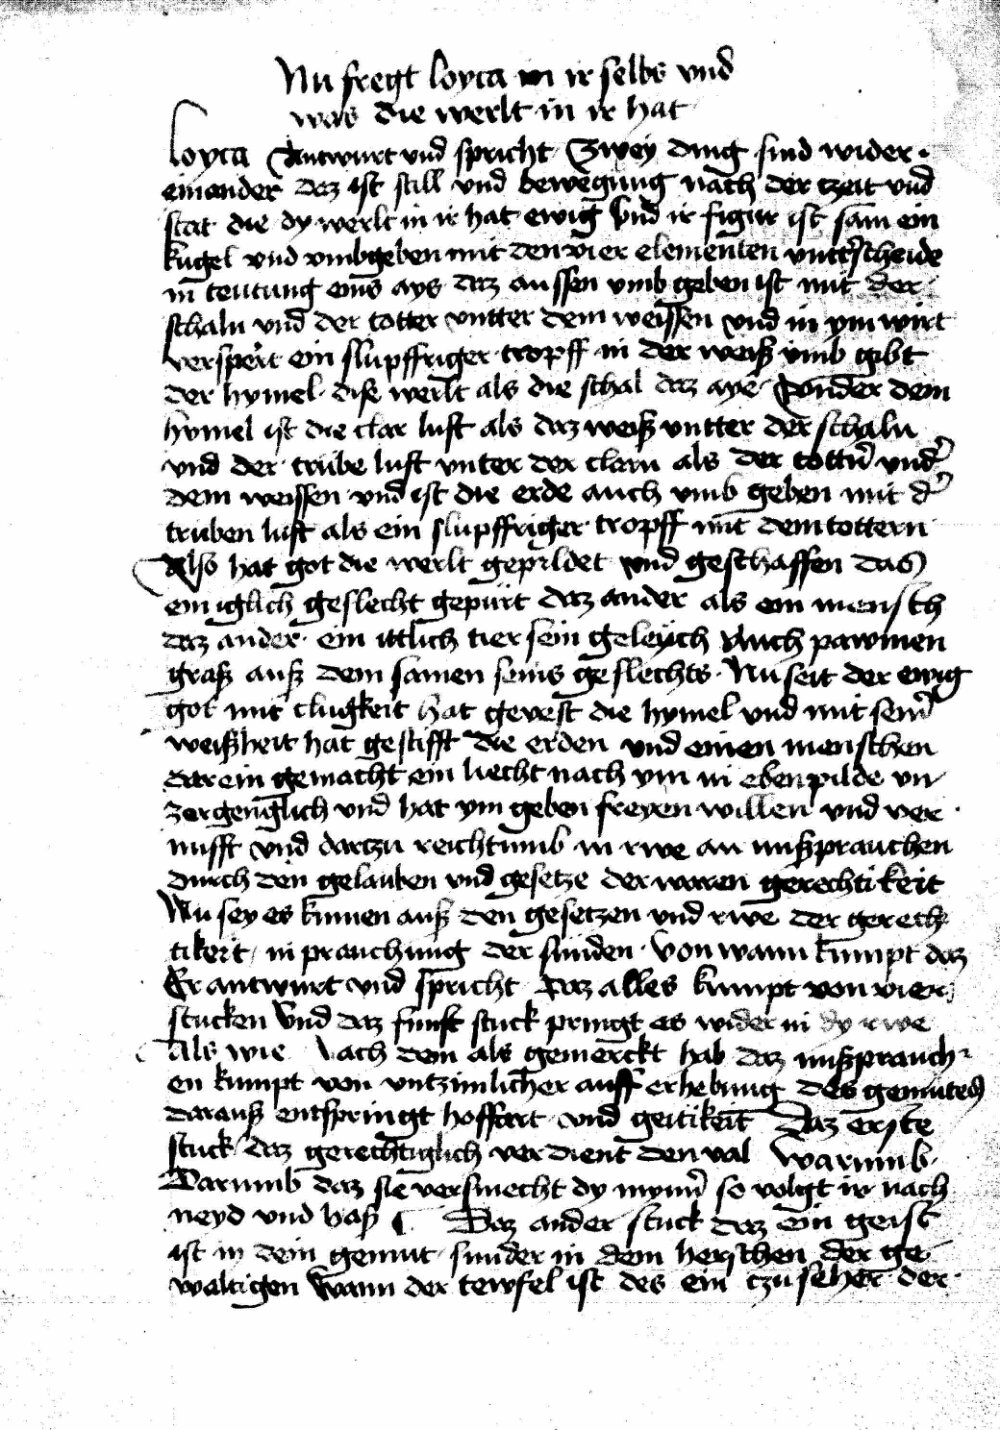 Nu fregt loyca in ir selbs vnd
was die werlt in ir hat
Loyca Antwurt vnd spricht Zwey ding sind wider
einander daz ist still vnd bewegung nach der zeit vnd
stat die dy werlt in ir hat ewig Vnd ir figur ist sam ein
kugel vnd vmbgeben mit den vier elementen vntterscheide
in teutung eins ays daz aussen vmb geben ist mit der
schaln vnd der totter vntter dem weissen vnd in ym wirt
verspert ein slupffriger tropff in der weiß vmb gibt
der hymel dise werlt als die schal daz aye Vonder dem
hymel ist die clar luft als daz weiß vntter der schaln
vnd der trube luft vnter der clarn als der tottern vnder
dem weissen vnd ist die erde auch vmb geben mit der
truben luft als ein slupffriger tropff mit dem tottern
Also hat got die werlt gepildet vnd geschaffen das
ein iglich geslecht gepürt daz ander als ein mensch
daz ander ein ittlich tier sein geleych Auch pawmen
graß auß dem samen seins geslechts Nu seit der ewig
got mit clugkeit hat gevest die hymel vnd mit seiner
weißheit hat gestifft die erden vnd einen menschen
darein gemacht ein liecht nach ym in ebenpilde vn
zergenglich vnd hat ym geben freyen willen vnd ver
nufft vnd dartzu reichtumb in rwe an mißprauchen
durch den gelauben vnd gesetze der waren gerechtikeit
Nu sey es kumen auß den gesetzen vnd rwe der gerech
tikeit in prauchung der sunden Von wann kumpt daz
Er antwurt vnd spricht Daz alles kumpt von vier
stucken Vnd daz funft stuck pringt es wider in dy rwe
Als wie Nach dem als gemerckt hab daz mißprauch
en kumpt von vntzimlicher auff erhebung des gemutes
darauß entspringt hoffart vnd geitikeit Daz erste
stuck daz gerechtiglich verdient den val Warumb
Darumb daz sie versmecht dy mynner so volgt ir nach
neyd vnd haß Daz ander stuck daz ein geist
ist in dein gemut sunder in dem herschen der ge
waltigen Wann der tewfel ist des ein tzuseher der